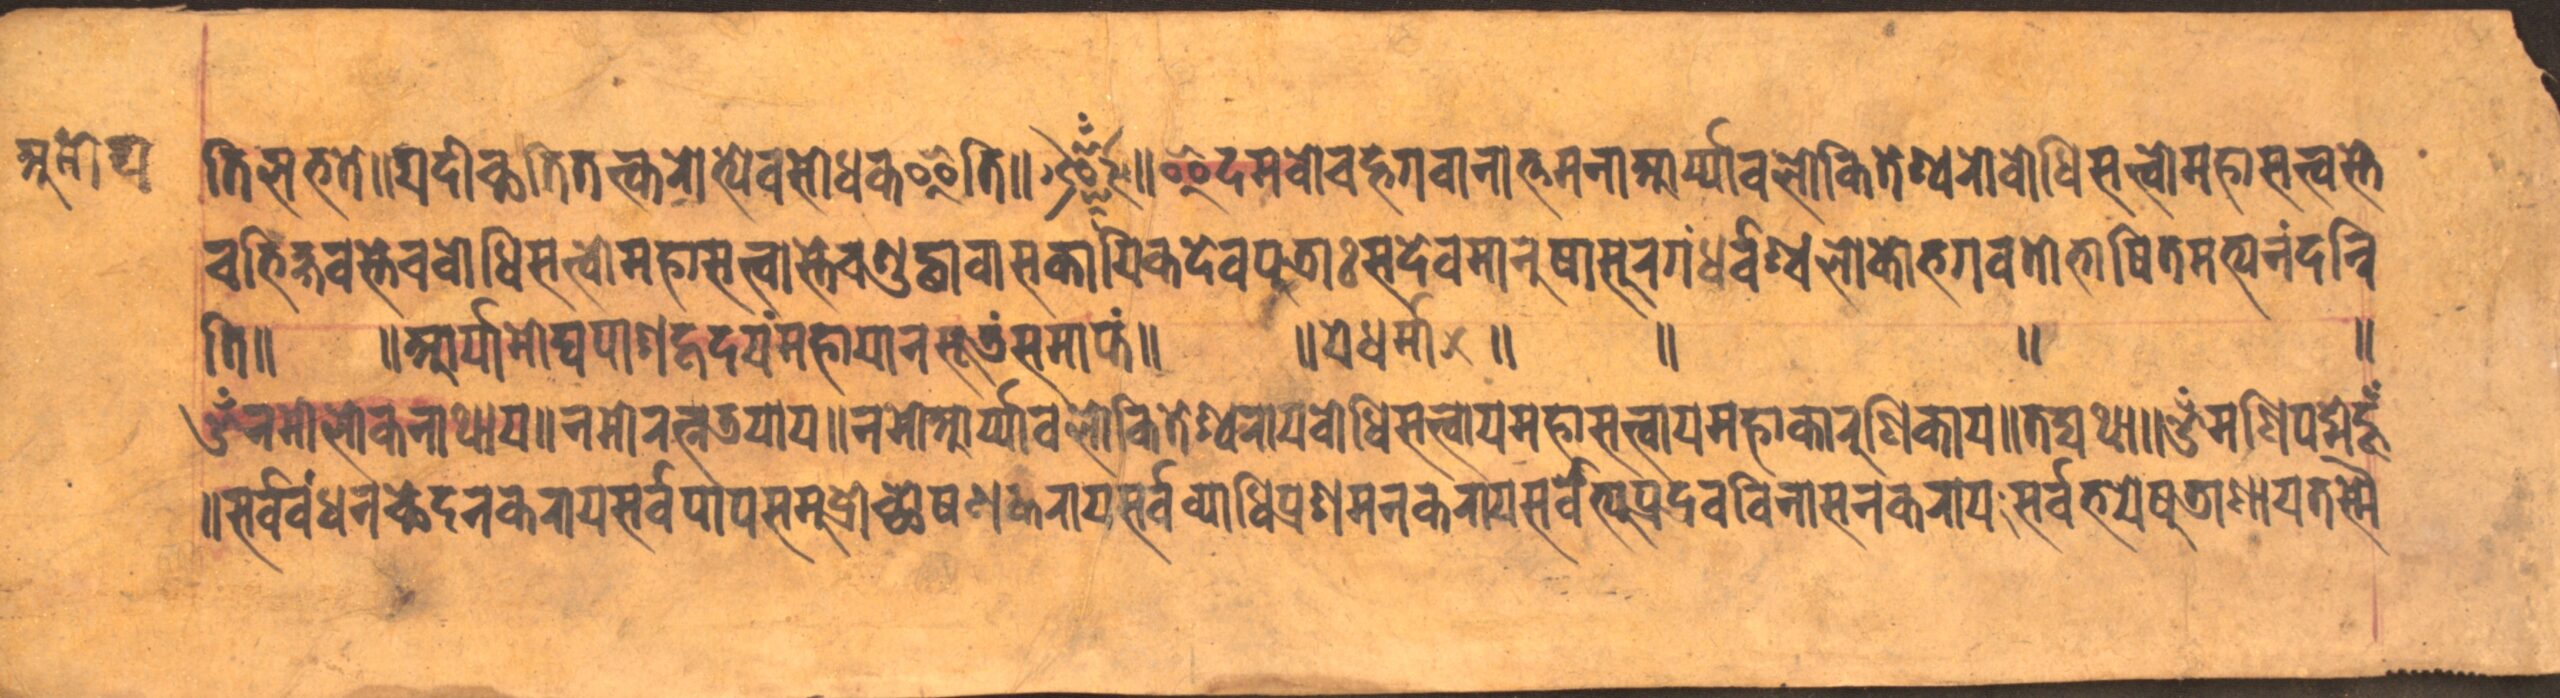 अमोघ
तिलभते॥यदीच्छतितत्करोत्येवसोधकइति॥ॐ॥इदमवोचद्भगवानात्तमनाआर्य्यावलोकितेश्वरोवोधिसत्त्वोमहासत्त्वस्ते
चभिक्षवस्तेचवोधिसत्त्वोमहासत्त्वास्तेचशुद्धावासकायिकदेवपुत्राःसदेवमानुषासुरगंधर्वश्चलोकोभगवतोभाषितमभ्यनंदन्नि
ति॥ ॥आर्यामोघपाशहृदयंमहायानसूत्रंसमाप्तं॥ ॥येधर्मा॥ ॥ ॥ ॥
ॐनमोलोकनाथाय॥नमोरत्नत्रयाय॥नमोआर्य्यावलोकितेश्वरायवोधिसत्त्वायमहासत्त्वायमहाकारुणिकाय॥तद्यथा॥ॐमणिपद्मेहूँ
॥सर्ववंधनच्छेदनकरायसर्वपापसमुद्रोच्छोषणकरायसर्वव्याधिप्रशमनकरायसर्वेत्युपद्रवविनासनकरायःसर्वभयेषुत्राणायतस्मै